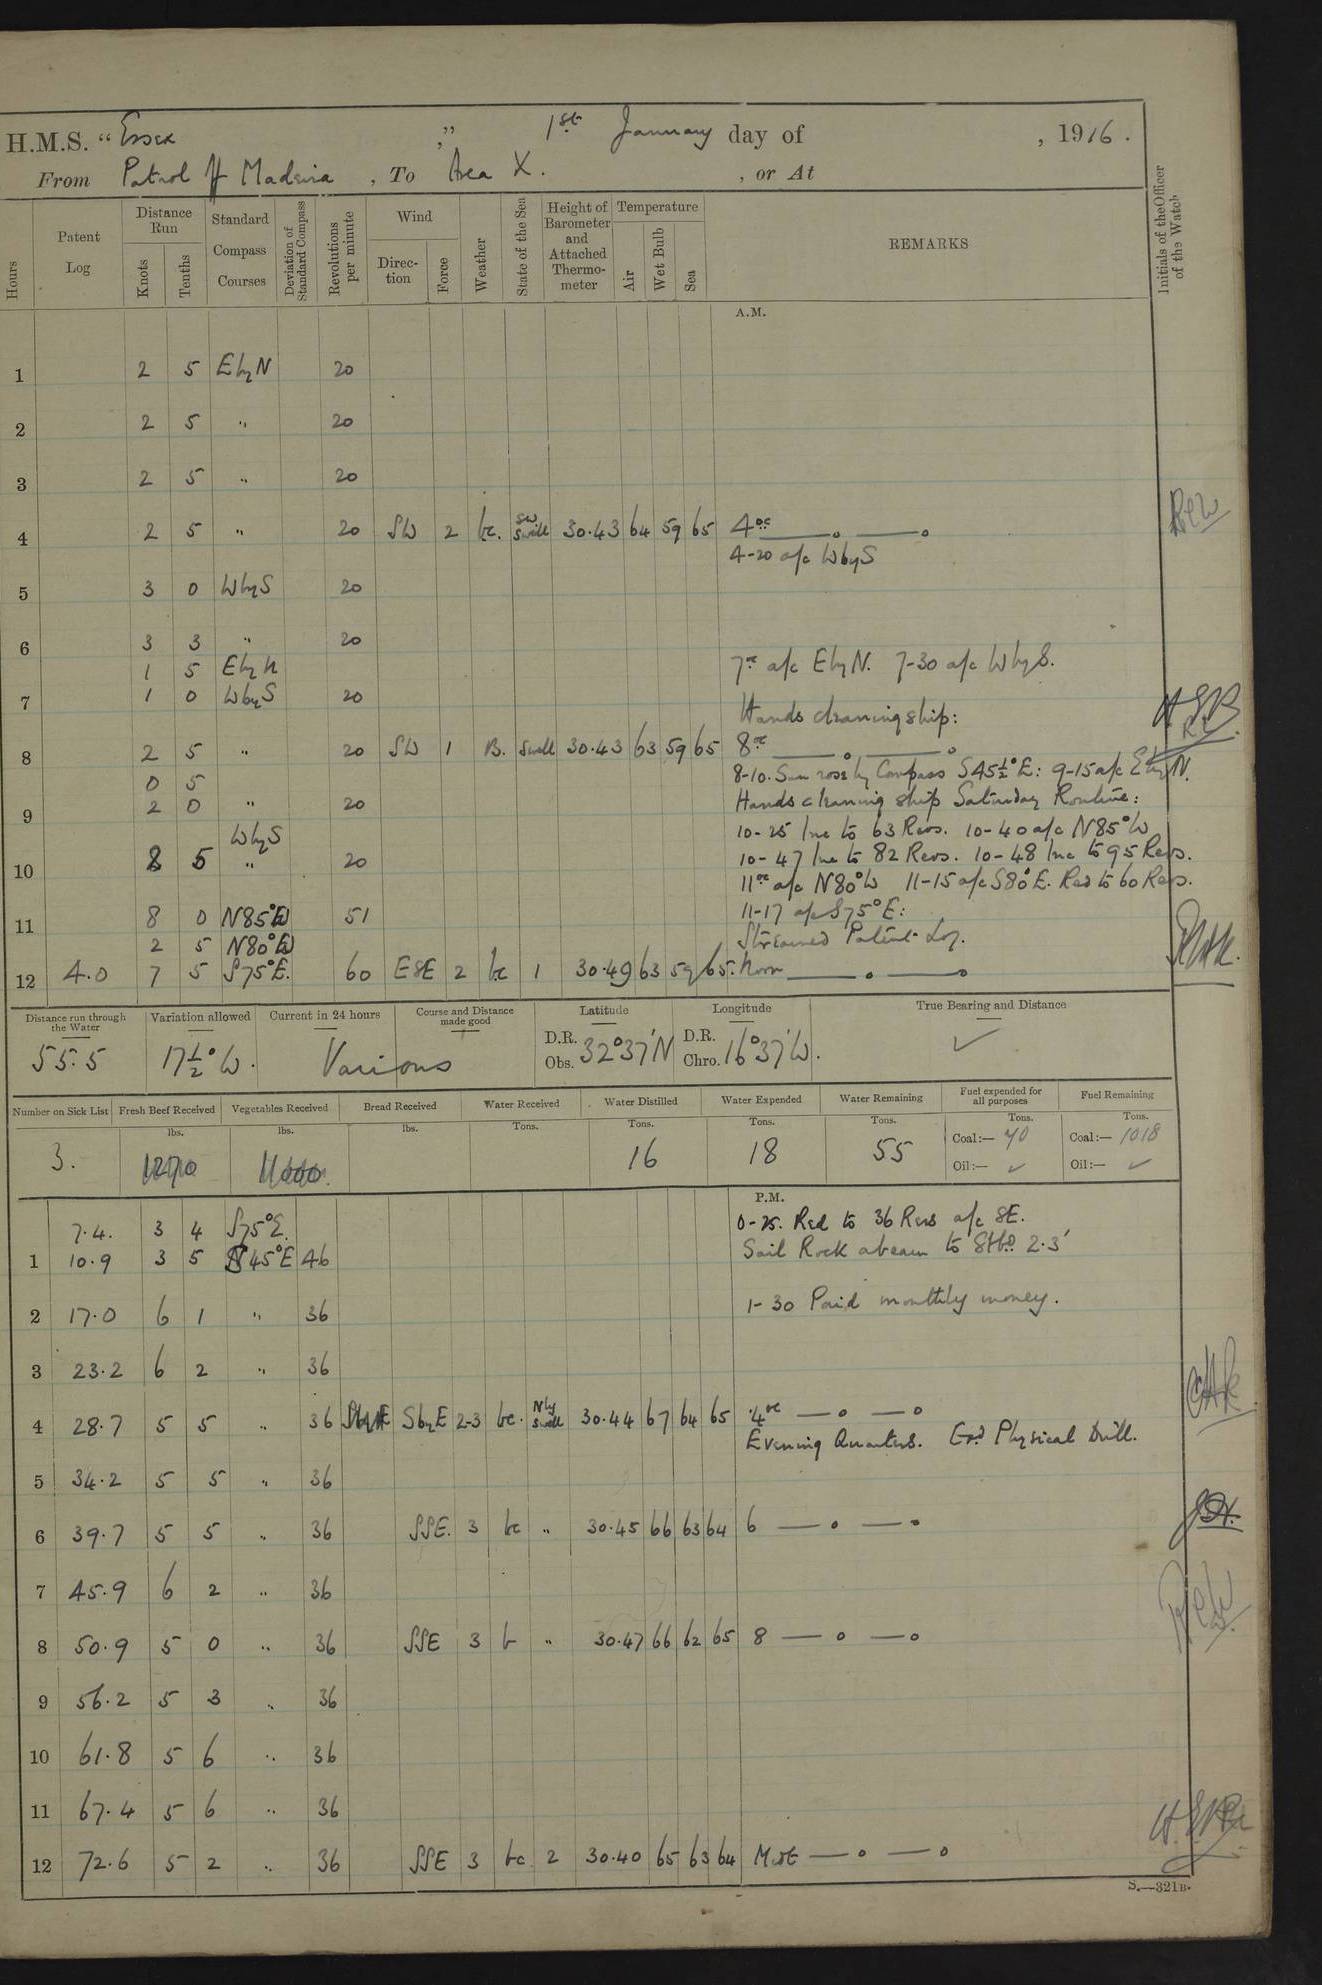 H.M.S. “ Essex ,” 1st January day of , 1916.
From Patrol off Madeira , To Area X. , or At
Hours
Patent Log
Distance Run
Knots
Tenths
Standard Compass Courses
Deviation of Standard Compass
Revolutions per minute
Wind
Direc-tion
Force
Weather
State of the Sea
Height of Barometer and Attached Thermo-meter
Temperature
Air
Wet Bulb
Sea
REMARKS
Initials of the Officer of the Watch
A.M.
1 2 5 EbyN 20
2 2 5 " 20
3 2 5 " 20
4 2 5 " 20 SW 2 bc. SW Swell 30.43 64 59 65 4oc —— o —— o
4-20 a/c WbyS
5 3 0 WbyS 20
6 3 3 " 20
1 5 EbyN 7oc a/c EbyN. 7-30 a/c WbyS.
7 1 0 WbyS 20
Hands cleaning ship:
8 2 5 " 20 SW 1 B. Swell 30.43 63 59 65 8oc —— o —— o
0 5 8-10. Sun rose by Compass S45½°E: 9-15 a/c EbyN.
9 2 0 " 20 Hands cleaning ship Saturday Routine:
WbyS 10-25 Inc to 63 Revs. 10-40 a/c N85°W
10 8 5 " 20 10-47 Inc to 82 Revs. 10-48 Inc to 95 Revs.
11oc a/c N80°W 11-15 a/c S80°E. Red to 60 Revs.
11 8 0 N85°W 51 11-17 a/c S75°E:
2 5 N80°W Streamed Patent Log.
12 4.0 7 5 S75°E. 60 ESE 2 bc 1 30.49 63 59 65. Noon —— o —— o
Distance run through the Water
55.5
Variation allowed
17½° W.
Current in 24 hours
Course and Distance made good
Various
Latitude
D.R.
Obs. 32°37'N
Longitude
D.R.
Chro. 16°37'W.
True Bearing and Distance
✓
Number on Sick List
3.
Fresh Beef Received
lbs.
Vegetables Received
lbs.
Bread Received
lbs.
Water Received
Tons.
Water Distilled
Tons.
16
Water Expended
Tons.
18
Water Remaining
Tons.
55
Fuel expended for all purposes
Tons.
Coal:— 40
Oil:— ✓
Fuel Remaining
Tons.
Coal:— 1018
Oil:— ✓
P.M.
7.4. 3 4 S75°E. 0-25. Red to 36 Revs a/c SE.
1 10.9 3 5 S45°E 46 Sail Rock abeam to Stbd 2.3'
2 17.0 6 1 " 36 1-30 Paid monthly money.
3 23.2 6 2 " 36
4 28.7 5 5 " 36 SbyE 2-3 bc. Nly Swell 30.44 67 64 65 4oc — o — o
Evening Quarters. Physical Drill.
5 34.2 5 5 " 36
6 39.7 5 5 " 36 SSE. 3 bc " 30.45 66 63 64 6 — o — o
7 45.9 6 2 " 36
8 50.9 5 0 " 36 SSE 3 b " 30.47 66 62 65 8 — o — o
9 56.2 5 3 " 36
10 61.8 5 6 " 36
11 67.4 5 6 " 36
12 72.6 5 2 " 36 SSE 3 bc 2 30.40 65 63 64 Midt — o — o
S.—321B.